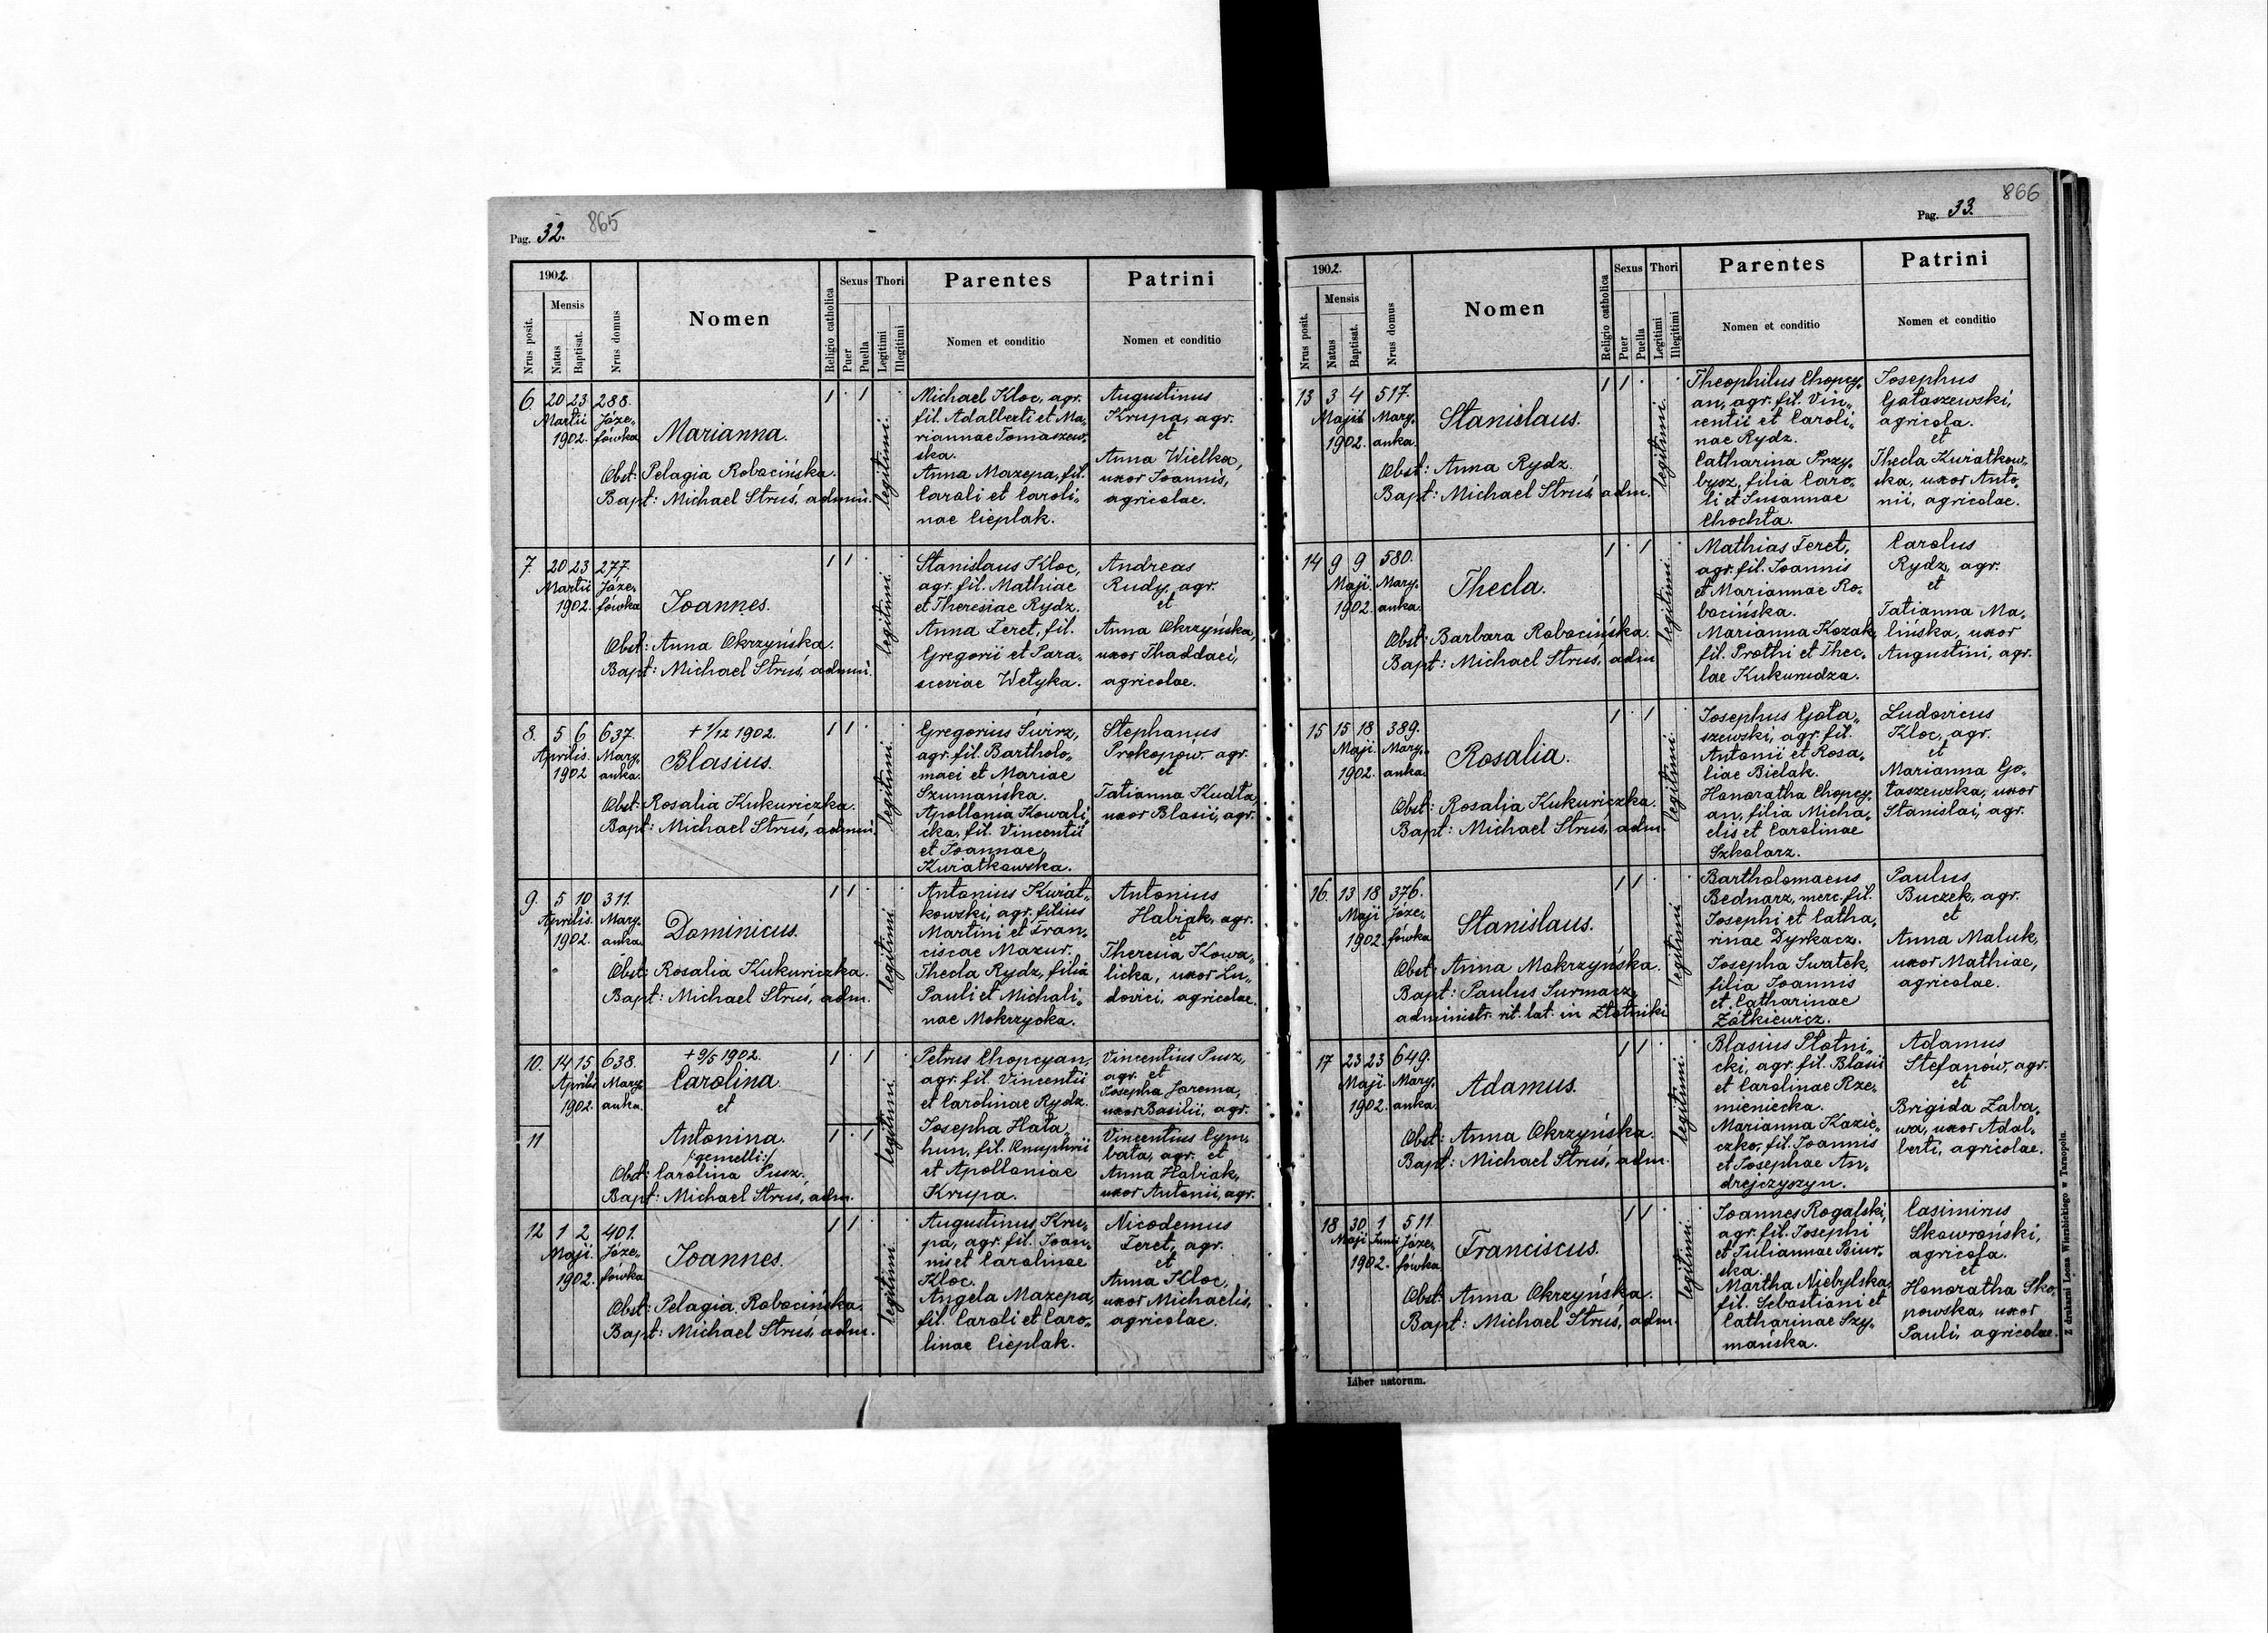 Pag. 32. 865
1902.
Nrus posit.
Mensis
Natus
Baptisat.
Nrus domus
Nomen
Religio catholica
Sexus
Puer
Puella
Thori
Legitimi
Illegitimi
Parentes
Nomen et conditio
Patrini
Nomen et conditio
6. 20 23 288.
Martii Józe„
1902. fówka
Marianna.
Obst: Pelagia Robocińska.
Bapt: Michael Struś, admin.
1 · 1 ·
legitimi.
Michael Kloc, agr.
fil. Adalberti et Ma„
riannae Tomaszew„
ska.
Anna Mazepa, fil.
Caroli et Caroli„
nae Cieplak.
Augustinus
Krupa, agr.
et
Anna Wielka,
uxor Joannis,
agricolae.
7. 20 23 277.
Martii Józe„
1902. fówka
Joannes.
Obst: Anna Okrzyńska.
Bapt: Michael Struś, admin.
1 1 · ·
legitimi.
Stanislaus Kloc,
agr. fil. Mathiae
et Theresiae Rydz.
Anna Feret, fil.
Gregorii et Para„
sceviae Wetyka.
Andreas
Rudy, agr.
et
Anna Okrzyńska,
uxor Thaddaei,
agricolae.
8. 5 6 637.
Aprilis. Mary„
1902 anka.
+ 1/12 1902.
Blasius.
Obst: Rosalia Kukuriczka.
Bapt: Michael Struś, admin.
1 1 · ·
legitimi.
Gregorius Świrz,
agr. fil. Bartholo„
maei et Mariae
Szumańska.
Apollonia Kowali„
cka, fil. Vincentii
et Joannae
Kwiatkowska.
Stephanus
Prokopow, agr.
et
Tatianna Kudła,
uxor Blasii, agr.
9. 5 10 311.
Aprilis. Mary„
1902. anka.
Dominicus.
Obst: Rosalia Kukuriczka.
Bapt: Michael Struś, adm.
1 1 · ·
legitimi.
Antonius Kwiat„
kowski, agr. filius
Martini et Fran„
ciscae Mazur.
Thecla Rydz, filia
Pauli et Michali„
nae Mokrzycka.
Antonius
Habiak, agr.
et
Theresia Kowa„
licka, uxor Lu„
dovici, agricolae.
10. 14 15 638.
Aprilis Mary„
1902. anka.
+ 9/5 1902.
Carolina
et
11
Antonina.
/:gemelli:/
Obst: Carolina Pusz.
Bapt: Michael Struś, adm.
1 · 1 ·
1 · 1
legitimi.
Petrus Chopcyan,
agr. fil. Vincentii
et Carolinae Rydz.
Josepha Hała„
hun, fil. Onuphrii
et Apolloniae
Krupa.
Vincentius Pusz,
agr. et
Josepha Jarema,
uxor Basilii, agr.
Vincentius Cym„
bała, agr. et
Anna Habiak,
uxor Antonii, agr.
12 1 2 401.
Maji. Józe„
1902. fówka
Joannes.
Obst: Pelagia Robocińska.
Bapt: Michael Struś, adm.
1 1 · ·
legitimi
Augustinus Kru„
pa, agr. fil. Joan„
nis et Carolinae
Kloc.
Angela Mazepa,
fil. Caroli et Caro„
linae Cieplak.
Nicodemus
Feret, agr.
et
Anna Kloc,
uxor Michaelis,
agricolae.
866
Pag. 33.
1902.
Nrus posit.
Mensis
Natus
Baptisat.
Nrus domus
Nomen
Religio catholica
Sexus
Puer
Puella
Thori
Legitimi
Illegitimi
Parentes
Nomen et conditio
Patrini
Nomen et conditio
13 3 4 517.
Maji Mary„
1902. anka.
Stanislaus.
Obst: Anna Rydz.
Bapt: Michael Struś, adm.
1 1 · ·
legitimi.
Theophilus Chopcy„
an, agr. fil. Vin„
centii et Caroli„
nae Rydz.
Catharina Przy„
bysz, filia Caro„
li et Susannae
Chochła.
Josephus
Gołaszewski,
agricola.
et
Thecla Kwiatkow„
ska, uxor Anto„
nii, agricolae.
14 9 9 580.
Maji Mary„
1902. anka.
Thecla.
Obst: Barbara Robocińska.
Bapt: Michael Struś, adm
1 · 1 ·
legitimi.
Mathias Feret,
agr. fil. Joannis
et Mariannae Ro„
bocińska.
Marianna Kozak,
fil. Prothi et Thec„
lae Kukurudza.
Carolus
Rydz, agr.
et
Tatianna Ma„
lińska, uxor
Augustini, agr.
15 15 18 389.
Maji. Mary„
1902. anka.
Rosalia.
Obst: Rosalia Kukuriczka.
Bapt: Michael Struś, adm.
1 · 1 ·
legitimi.
Josephus Goła„
szewski, agr. fil.
Antonii et Rosa„
liae Bielak.
Honoratha Chopcy„
an, filia Micha„
elis et Carolinae
Szkolarz.
Ludovicus
Kloc, agr.
et
Marianna Go„
łaszewska, uxor
Stanislai, agr.
16. 13 18 376.
Maji Józe„
1902. fówka
Stanislaus.
Obst: Anna Mokrzyńska.
Bapt: Paulus Surmacz,
administr. rit. lat. in Złotniki
1 1 · ·
legitimi
Bartholomaeus
Bednarz, merc. fil.
Josephi et Catha„
rinae Dyrkacz.
Josepha Swatek,
filia Joannis
et Catharinae
Żółkiewicz.
Paulus
Buczek, agr.
et
Anna Maluk,
uxor Mathiae,
agricolae.
17 23 23 649.
Maji. Mary„
1902. anka.
Adamus.
Obst: Anna Okrzyńska.
Bapt: Michael Struś, adm.
1 1 · ·
legitimi.
Blasius Płotni„
cki, agr. fil. Blasii
et Carolinae Rze„
mieniecka.
Marianna Kazie„
czko, fil. Joannis
et Josephae An„
drejczyszyn.
Adamus
Stefanów, agr.
et
Brigida Zaba„
wa, uxor Adal„
berti, agricolae.
18 30 1 511.
Maji Junii Józe„
1902. fówka
Franciscus.
Obst: Anna Okrzyńska.
Bapt: Michael Struś, adm.
1 1 · ·
legitimi.
Joannes Rogalski,
agr. fil. Josephi
et Juliannae Biur„
ska.
Martha Niebylska,
fil. Sebastiani et
Catharinae Szy„
mańska.
Casimirus
Skowroński,
agricola.
et
Honoratha Sko„
powska, uxor
Pauli, agricolae.
Liber natorum.
Z drukarni Leona Wierzbickiego w Tarnopolu.